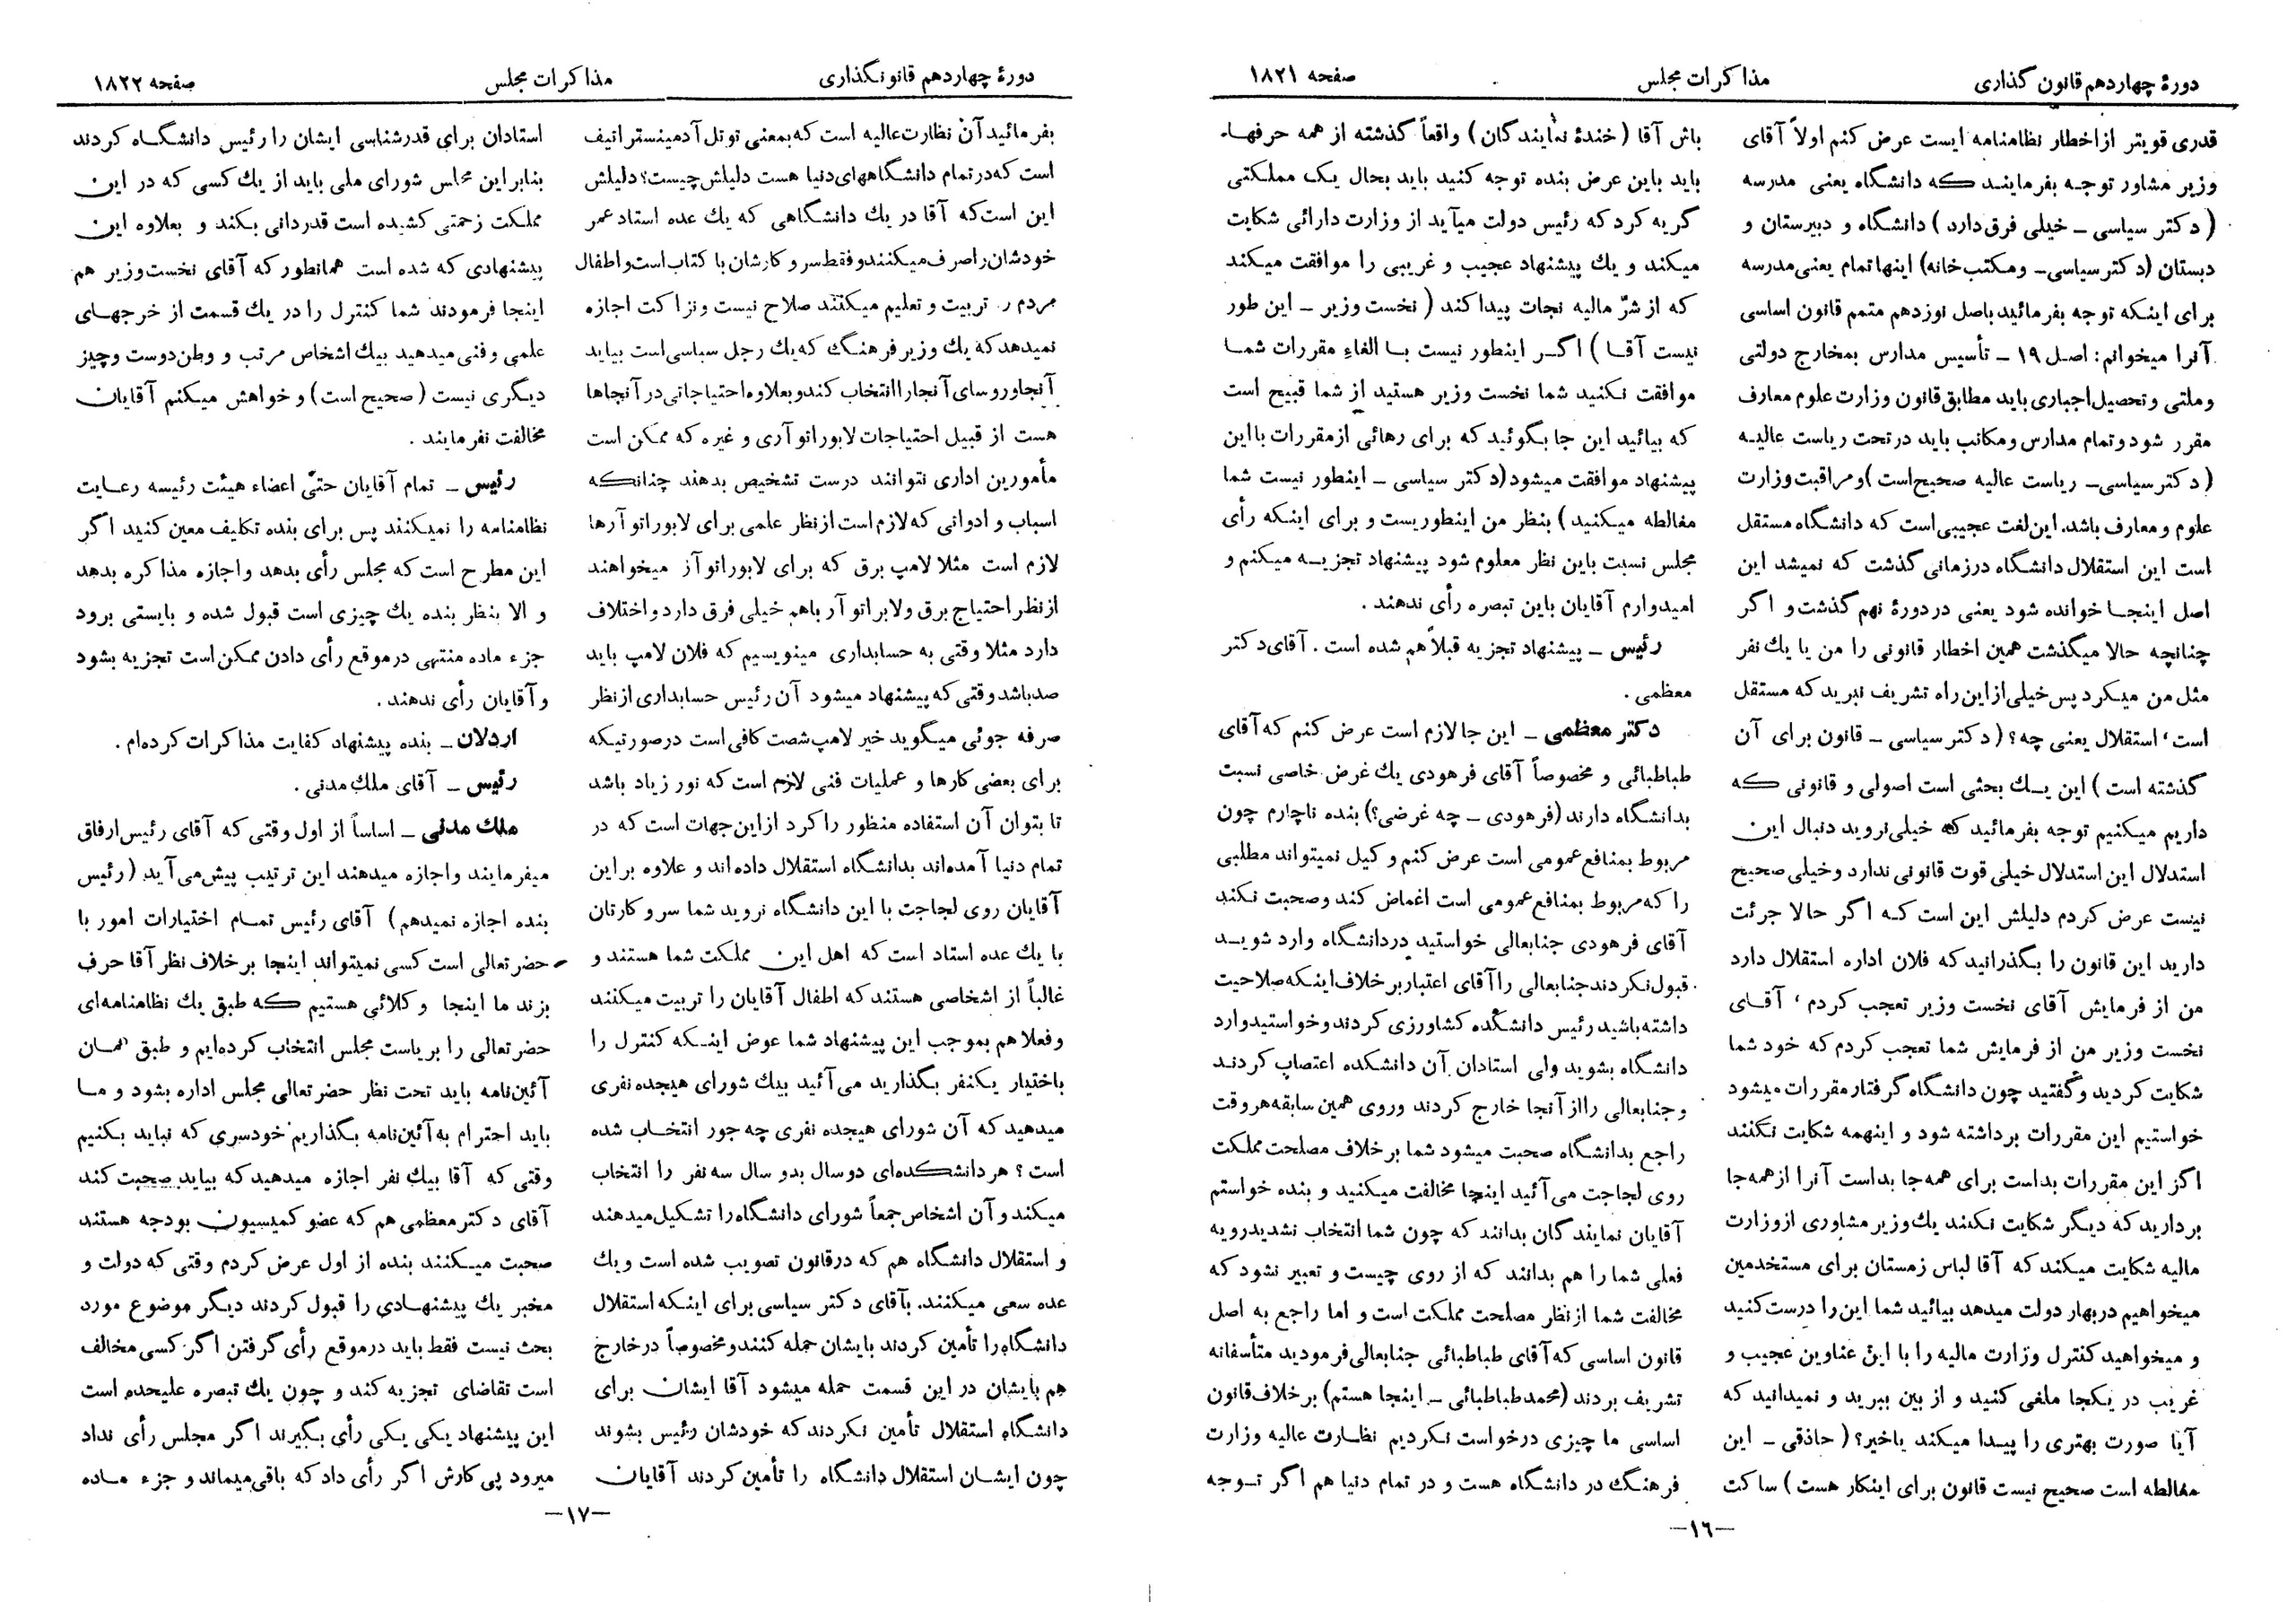 دورهٔ چهاردهم قانون گذاری
مذاکرات مجلس
صفحه ۱۸۲۱
قدری قویتر از اخطار نظامنامه ایست عرض کنم اولاً آقای
وزیر مشاور توجه بفرمایند که دانشگاه یعنی مدرسه
( دکتر سیاسی ـ خیلی فرق دارد ) دانشگاه و دبیرستان و
دبستان (دکتر سیاسی ـ ومکتب خانه) اینها تمام یعنی مدرسه
برای اینکه توجه بفرمائید باصل نوزدهم متمم قانون اساسی
آنرا میخوانم : اصل ۱۹ ـ تأسیس مدارس بمخارج دولتی
وملتی و تحصیل اجباری باید مطابق قانون وزارت علوم معارف
مقرر شود و تمام مدارس و مکاتب باید در تحت ریاست عالیه
( دکتر سیاسی ـ ریاست عالیه صحیح است ) و مراقبت وزارت
علوم و معارف باشد. این لغت عجیبی است که دانشگاه مستقل
است این استقلال دانشگاه در زمانی گذشت که نمیشد این
اصل اینجا خوانده شود یعنی در دورهٔ نهم گذشت و اگر
چنانچه حالا میگذشت همین اخطار قانونی را من یا یك نفر
مثل من میکرد پس خیلی از این راه تشریف نبرید که مستقل
است ، استقلال یعنی چه ؟ ( دکتر سیاسی ـ قانون برای آن
گذشته است ) این یك بحثی است اصولی و قانونی که
داریم میکنیم توجه بفرمائید که خیلی نروید دنبال این
استدلال این استدلال خیلی قوت قانونی ندارد و خیلی صحیح
نیست عرض کردم دلیلش این است که اگر حالا جرئت
دارید این قانون را بگذرانید که فلان اداره استقلال دارد
من از فرمایش آقای نخست وزیر تعجب کردم ، آقای
نخست وزیر من از فرمایش شما تعجب کردم که خود شما
شکایت کردید و گفتید چون دانشگاه گرفتار مقررات میشود
خواستیم این مقررات برداشته شود و اینهمه شکایت نکنند
اگر این مقررات بداست برای همه جا بداست آنرا از همه جا
بردارید که دیگر شکایت نکنند یك وزیر مشاوری از وزارت
مالیه شکایت میکند که آقا لباس زمستان برای مستخدمین
میخواهیم در بهار دولت میدهد بیائید شما این را درست کنید
و میخواهید کنترل وزارت مالیه را با این عناوین عجیب و
غریب در یکجا ملغی کنید و از بین ببرید و نمیدانید که
آیا صورت بهتری را پیدا میکند یا خیر؟ ( حاذقی ـ این
مغالطه است صحیح نیست قانون برای اینکار هست ) ساکت
باش آقا ( خندهٔ نمایندگان ) واقعاً گذشته از همه حرفها
باید باین عرض بنده توجه کنید باید بحال یک مملکتی
گریه کرد که رئیس دولت میآید از وزارت دارائی شکایت
میکند و یك پیشنهاد عجیب و غریبی را موافقت میکند
که از شرّ مالیه نجات پیدا کند ( نخست وزیر ـ این طور
نیست آقا ) اگر اینطور نیست با الغاء مقررات شما
موافقت نکنید شما نخست وزیر هستید از شما قبیح است
که بیائید این جا بگوئید که برای رهائی از مقررات با این
پیشنهاد موافقت میشود (دکتر سیاسی ـ اینطور نیست شما
مغالطه میکنید ) بنظر من اینطوریست و برای اینکه رأی
مجلس نسبت باین نظر معلوم شود پیشنهاد تجزیه میکنم و
امیدوارم آقایان باین تبصره رأی ندهند .
رئیس ـ پیشنهاد تجزیه قبلاً هم شده است . آقای دکتر
معظمی .
دکتر معظمی ـ این جا لازم است عرض کنم که آقای
طباطبائی و مخصوصاً آقای فرهودی یك غرض خاصی نسبت
بدانشگاه دارند (فرهودی ـ چه غرضی؟) بنده ناچارم چون
مربوط بمنافع عمومی است عرض کنم و کیل نمیتواند مطلبی
را که مربوط بمنافع عمومی است اغماض کند و صحبت نکند
آقای فرهودی جنابعالی خواستید در دانشگاه وارد شوید
قبول نکردند جنابعالی را آقای اعتبار برخلاف اینکه صلاحیت
داشته باشید رئیس دانشکده کشاورزی کردند و خواستید وارد
دانشگاه بشوید ولی استادان آن دانشکده اعتصاب کردند
و جنابعالی را از آنجا خارج کردند و روی همین سابقه هر وقت
راجع بدانشگاه صحبت میشود شما برخلاف مصلحت مملکت
روی لجاجت می آئید اینجا مخالفت میکنید و بنده خواستم
آقایان نمایندگان بدانند که چون شما انتخاب نشدید رویه
فعلی شما را هم بدانند که از روی چیست و تعبیر نشود که
مخالفت شما از نظر مصلحت مملکت است و اما راجع به اصل
قانون اساسی که آقای طباطبائی جنابعالی فرمودید متأسفانه
تشریف بردند (محمد طباطبائی ـ اینجا هستم) برخلاف قانون
اساسی ما چیزی درخواست نکردیم نظارت عالیه وزارت
فرهنگ در دانشگاه هست و در تمام دنیا هم اگر توجه
ـ ۱٦ ـ
دورهٔ چهاردهم قانونگذاری
مذاکرات مجلس
صفحه ۱۸۲۲
بفرمائید آن نظارت عالیه است که بمعنی توتل آدمینستراتیف
است که در تمام دانشگاههای دنیا هست دلیلش چیست؟ دلیلش
این است که آقا در یك دانشگاهی که یك عده استاد عمر
خودشان را صرف میکنند و فقط سر و کارشان با کتاب است و اطفال
مردم را تربیت و تعلیم میکنند صلاح نیست و نزاکت اجازه
نمیدهد که یك وزیر فرهنگ که یك رجل سیاسی است بیاید
آنجا و روسای آنجا را انتخاب کند و بعلاوه احتیاجاتی در آنجاها
هست از قبیل احتیاجات لابوراتوآری و غیره که ممکن است
مأمورین اداری نتوانند درست تشخیص بدهند چنانکه
اسباب و ادواتی که لازم است از نظر علمی برای لابوراتوآرها
لازم است مثلا لامپ برق که برای لابوراتوآر میخواهند
از نظر احتیاج برق و لابراتوآر باهم خیلی فرق دارد و اختلاف
دارد مثلا وقتی به حسابداری مینویسیم که فلان لامپ باید
صد باشد وقتی که پیشنهاد میشود آن رئیس حسابداری از نظر
صرفه جوئی میگوید خیر لامپ شصت کافی است درصورتیکه
برای بعضی کارها و عملیات فنی لازم است که نور زیاد باشد
تا بتوان آن استفاده منظور را کرد از این جهات است که در
تمام دنیا آمده‌اند بدانشگاه استقلال داده اند و علاوه بر این
آقایان روی لجاجت با این دانشگاه نروید شما سر و کارتان
با یك عده استاد است که اهل این مملکت شما هستند و
غالباً از اشخاصی هستند که اطفال آقایان را تربیت میکنند
و فعلا هم بموجب این پیشنهاد شما عوض اینکه کنترل را
باختیار یکنفر بگذارید می آئید بیك شورای هیجده نفری
میدهید که آن شورای هیجده نفری چه جور انتخاب شده
است ؟ هر دانشکده‌ای دو سال بدو سال سه نفر را انتخاب
میکند و آن اشخاص جمعاً شورای دانشگاه را تشکیل میدهند
و استقلال دانشگاه هم که در قانون تصویب شده است و یك
عده سعی میکنند. بآقای دکتر سیاسی برای اینکه استقلال
دانشگاه را تأمین کردند بایشان حمله کنند و مخصوصاً در خارج
هم بایشان در این قسمت حمله میشود آقا ایشان برای
دانشگاه استقلال تأمین نکردند که خودشان رئیس بشوند
چون ایشان استقلال دانشگاه را تأمین کردند آقایان
استادان برای قدرشناسی ایشان را رئیس دانشگاه کردند
بنابر این مجلس شورای ملی باید از یك کسی که در این
مملکت زحمتی کشیده است قدردانی بکند و بعلاوه این
پیشنهادی که شده است همانطور که آقای نخست وزیر هم
اینجا فرمودند شما کنترل را در یك قسمت از خرجهای
علمی و فنی میدهید بیك اشخاص مرتب و وطن دوست و چیز
دیگری نیست (صحیح است) و خواهش میکنم آقایان
مخالفت نفرمایند .
رئیس ـ تمام آقایان حتّی اعضاء هیئت رئیسه رعایت
نظامنامه را نمیکنند پس برای بنده تکلیف معین کنید اگر
این مطرح است که مجلس رأی بدهد و اجازه مذاکره بدهد
و الا بنظر بنده یك چیزی است قبول شده و بایستی برود
جزء ماده منتهی در موقع رأی دادن ممکن است تجزیه بشود
و آقایان رأی ندهند .
اردلان ـ بنده پیشنهاد کفایت مذاکرات کرده‌ام .
رئیس ـ آقای ملك مدنی .
ملك مدنی ـ اساساً از اول وقتی که آقای رئیس ارفاق
میفرمایند و اجازه میدهند این ترتیب پیش می آید (رئیس
بنده اجازه نمیدهم) آقای رئیس تمام اختیارات امور با
حضرتعالی است کسی نمیتواند اینجا برخلاف نظر آقا حرف
بزند ما اینجا وکلائی هستیم که طبق یك نظامنامه‌ای
حضرتعالی را بریاست مجلس انتخاب کرده‌ایم و طبق همان
آئین‌نامه باید تحت نظر حضرتعالی مجلس اداره بشود و ما
باید احترام به آئین‌نامه بگذاریم خودسری که نباید بکنیم
وقتی که آقا بیك نفر اجازه میدهید که بیاید صحبت کند
آقای دکتر معظمی هم که عضو کمیسیون بودجه هستند
صحبت میکنند بنده از اول عرض کردم وقتی که دولت و
مخبر یك پیشنهادی را قبول کردند دیگر موضوع مورد
بحث نیست فقط باید در موقع رأی گرفتن اگر کسی مخالف
است تقاضای تجزیه کند و چون یك تبصره علیحده است
این پیشنهاد یکی یکی رأی بگیرند اگر مجلس رأی نداد
میرود پی کارش اگر رأی داد که باقی میماند و جزء ماده
ـ ۱۷ ـ